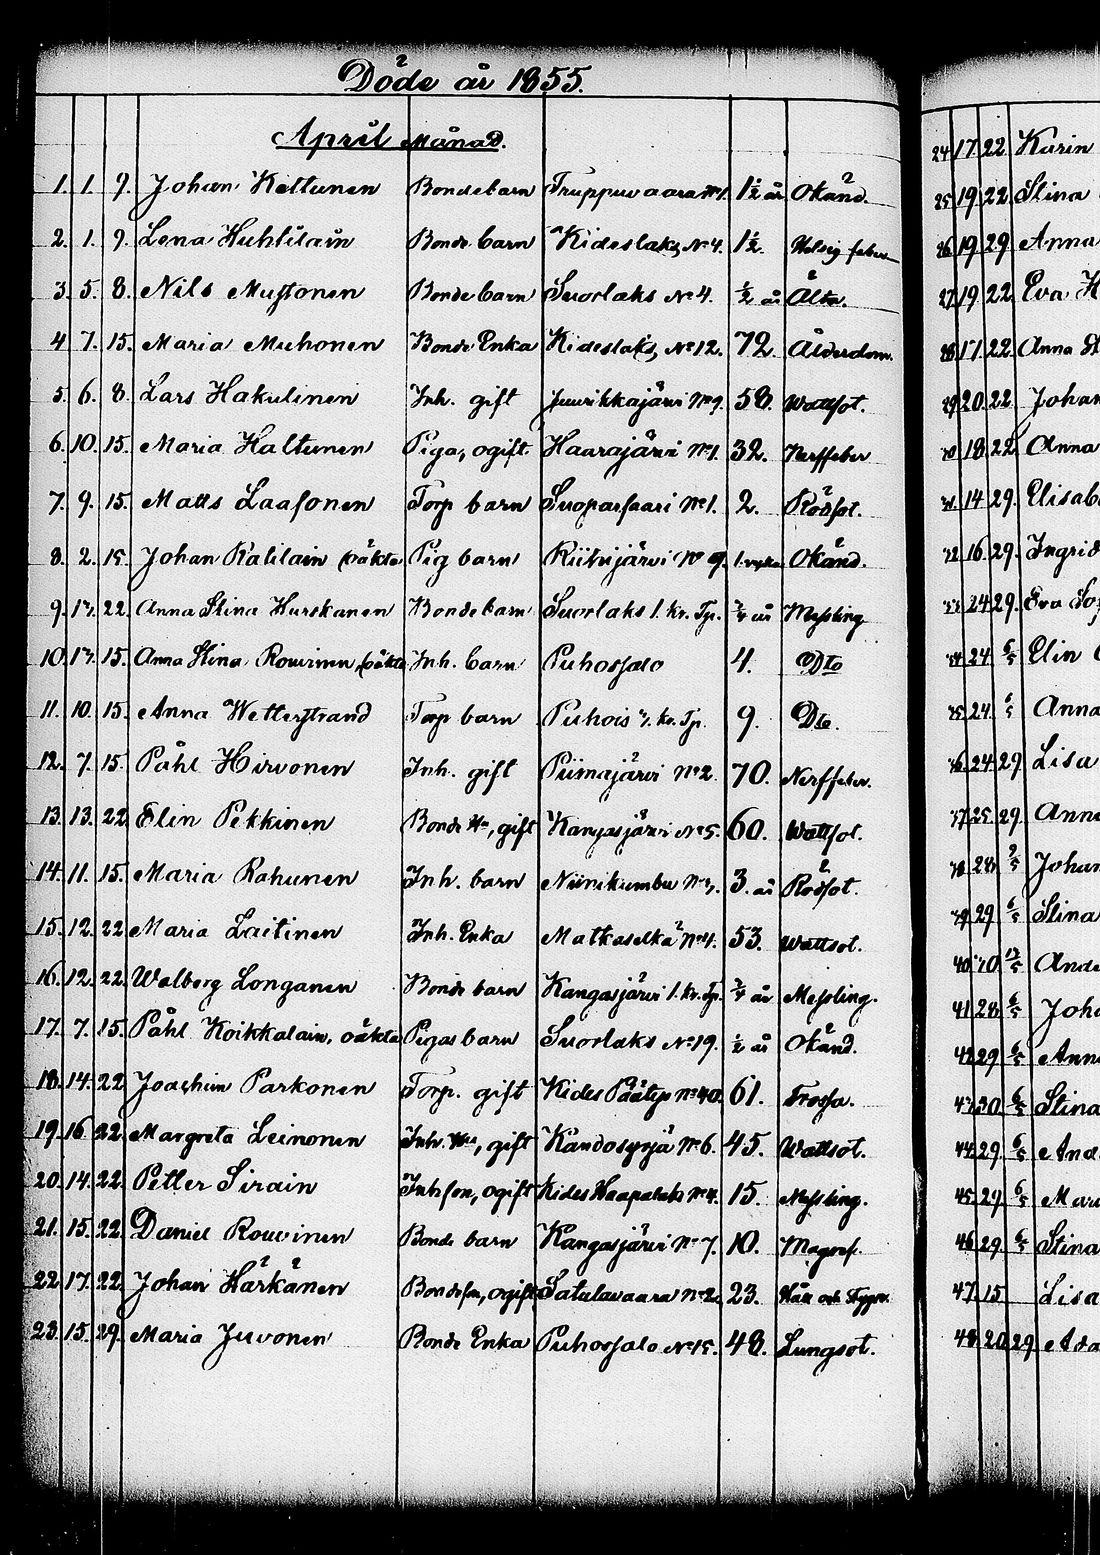 Döde år 1855.
April Månad.
1. 1. 9. Johan Kettunen Bondebarn Truppuvaara No 1. 1½ år Okänd.
2. 1. 9. Lena Huhtilain Bonde barn Kideslaks No 4. 1½. feber
3. 5. 8. Nils Mustonen Bonde barn Suorlaks No 4. ½ år Älta.
4 7. 15. Maria Muhonen Bonde Enka Kideslaks No 12. 72. Ålderdom.
5. 6. 8. Lars Hakulinen Inh. gift Juurikkajärvi No 9. 58. Wattsot.
6. 10. 15. Maria Haltunen Piga, ogift. Haarajärvi No 1. 32. Nerffeber
7. 9. 15. Matts Laasonen Torp barn Suoparsaari No 1. 2. Rödsot.
8. 2. 15. Johan Ralilain (oäkta Pig barn Riitujärvi No 9. 1. Okänd.
9. 17. 22. Anna Stina Hurskanen Bonde barn Suorlaks 1. kr. Tp. ¾ år Messling
10. 17. 15. Anna Stina Rouvinen (oäkta Inh. barn Puhossalo 4. Dto
11. 10. 15. Anna Wetterstrand Torp barn Puhois kr. Tp. 9. Dto.
12. 7. 15. Påhl Hirvonen Inh. gift Piimäjärvi No 2. 70. Nerffeber.
13. 13. 22. Elin Pekkinen Bonde Hu, gift Kangasjärvi No 5. 60. Wattsot.
14. 11. 15. Maria Rahunen Inh. barn Niinikumbu No 3. år Rödsot.
15. 12. 22. Maria Laitinen Inh. Enka Matkaselkä No 4. 53. Wattsot.
16. 12. 22. Walborg Longanen Bonde barn Kangasjärvi 1. kr. Tp. ¾ år Messling.
17. 7. 15. Påhl Koikkalain, oäkta Pigas barn Suorlaks No 19. ½ år Okänd.
18. 14. 22. Joachim Parkonen Torp. gift Kides Päätyp No 40. 61. Frossa.
19. 16. 22. Margreta Leinonen Inh. Hu, gift Kandosyrjä No 6. 45. Wattsot.
20. 14. 22. Petter Sirain Inh son, ogift Kides Haapalaks No 4. 15. Messling.
21. 15. 22. Daniel Rouvinen Bonde barn Kangasjärvi No 7. 10. Magref.
22. 17. 22. Johan Härkänen Bondeson, ogift Satulavaara No 2. 23. Håll och Stygn.
23. 15. 29. Maria Juvonen Bonde Enka Puhossalo No 15. 48. Lungsot.
24 17 22 Karin
25 19 22 Stina
26 19 29 Anna
27 19 22 Eva H
28 17 22. Anna St
29 20. 22 Johan
30 18. 22 Anna
31. 14 29. Elisab
32 16 29. Ingrid
33 24 29. Eva So
34 24 6/5 Elin
35 24. 6/5 Anna
36 24 29 Lisa
37 25. 29 Anna
38 28 Johan
39 29 6/5 Stina
40 10 Ande
41 28 6/5 Joha
42 29 6/5 Anna
43 30 6/5 Stina
44 29. 6/5 And
45 29. 6/5 Mari
46 29. 6/5 Stina
47 15 Lisa
48 20 29 Ada